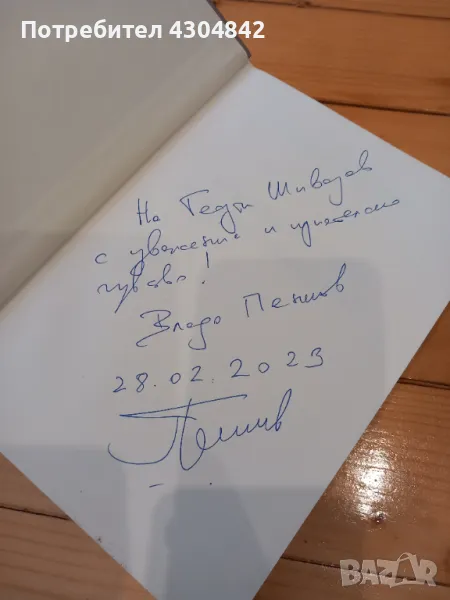 Потребител 4304842
На Теди Шивачев
с уважение и приятелско
чувство!
Владо Пенев
28.02.2023
Пенев
BAZAR